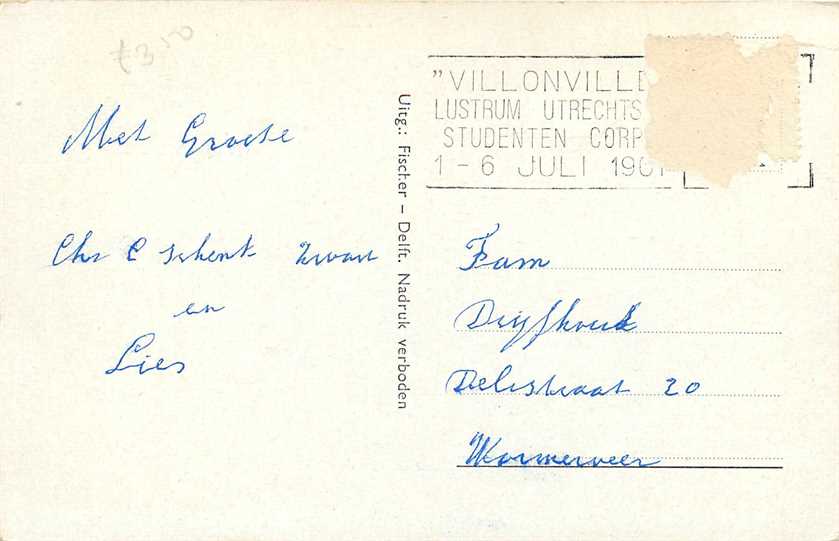 £3,50
"VILLONVILLE
LUSTRUM UTRECHTS
STUDENTEN CORP
1 - 6 JULI 1961
Met Groete
Chr C Schenk Zwart
en
Lies
Uitg.: Fischer – Delft. Nadruk verboden
Fam
Duyfhouse
Delistraat 20
Wormerveer